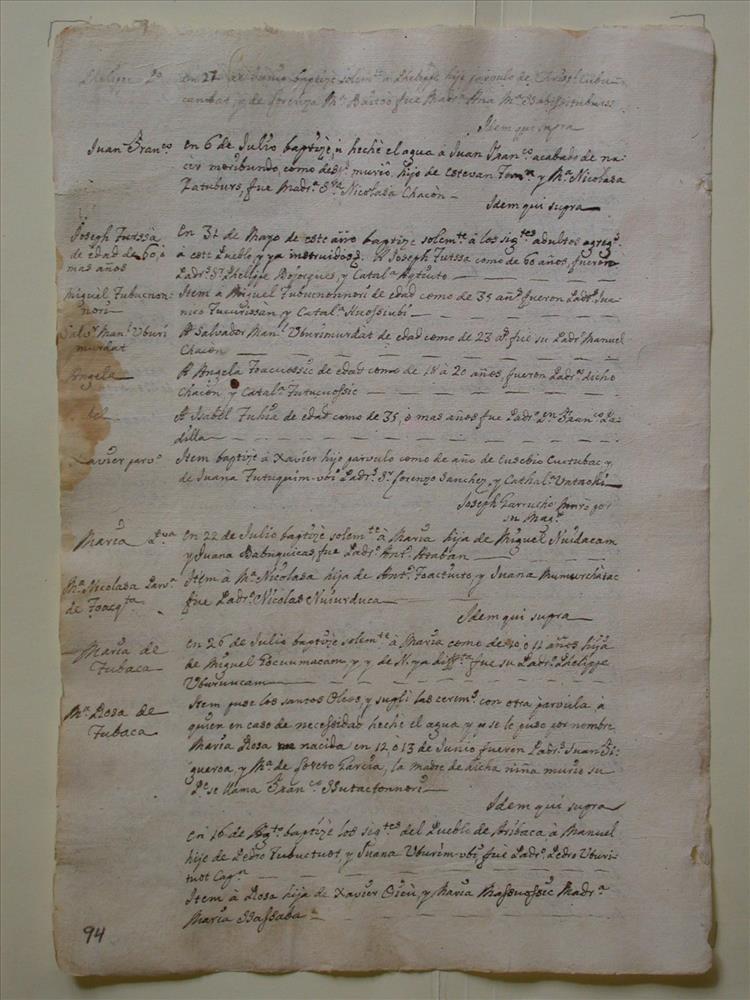 Phelipe Po en 27 de Junio baptize solemte à Phelippe hijo parvulo de
y de Lorenza Ma fue Madra Ana Ma
Idem qui supra
Juan Franco en 6 de Julio baptize, ù heché el agua a Juan Franco acabado de na-
cer moribundo, como despa murió, hijo de Estevan y Ma Nicolasa
Tatuburs, fue Madra Sra Nicolasa Chacòn
Idem qui supra
Joseph Tutssa
de edad de 60, ò
mas años
En 31 de Mayo de este año baptize solemte à los sigtes adultos agregs
à este Pueblo, y ya instruidos. A Joseph Tutssa como de 60 años, fueron
Padrs Sr Phelippe Bojorques, y Catala
Miguel Tubucnon-
nori
Item à Miguel Tubucnonnori de edad como de 35 añs fueron Padrs Jua-
nico Tucurissan, y Catala
Salvr Manl Uburi
murdat
A Salvador Manl Uburimurdat de edad como de 23 as fue su Padro Manuel
Chacòn
Angela
A Angela Toacuossic de edad como de 18 à 20 años, fueron Padrs dicho
Chacòn, y Catala Tutucuossic
bel
A Isabèl Tubia de edad como de 35, ò mas años fue Padrn Franco Pa-
dilla
Xavier parvo
Item baptize à Xavier hijo parvulo como de año de Eusebio Cuctubac, y
de Juana Tutuquim-ubi Padrs Sr Lorenzo Sanchez, y Cathala Vataoki
Joseph Garrucho Minro por
su Magd
Maria
en 22 de Julio baptize solemte à Maria hija de Miguel Nuidacam
y Juana Babnquicas, fue Padro Anto Azaban
Ma Nicolasa Parva
de Toacqta
Item à Ma Nicolasa hija de Anto Toactuito, y Juana Mumurchatac
fue Padro Nicolas Nuiurduca
Idem qui supra
Maria de
Tubaca
en 26 de Julio baptize solemte à Maria como de 10, ò 11 años hija
de Miguel Cocuumacam, y de N. ya difta fue su Padro Phelippe
Uburuucam
Ma Rosa de
Tubaca
Item puse los santos Oleos, y supli las cerems con otra parvula à
quien en caso de necessidad heché el agua, y se le puso por nombre
Maria Rosa nacida en 12, ò 13 de Junio fueron Padrs Juan Fi-
gueroa, y Ma de Loreto Garcia, la madre de dicha niña murio su
Pe se llama Franco Butactonnori
Idem qui supra
en 16 de Agto baptize los sigtes del Pueblo de Aribaca à Manuel
hijo de Pedro Tubuctuot, y Juana Uburim-ubi, fue Padro Pedro Uburi-
tuot Capn
Item à Rosa hija de Xavier Oicù, y Maria Massuossic Madra
Maria Bassaba
94